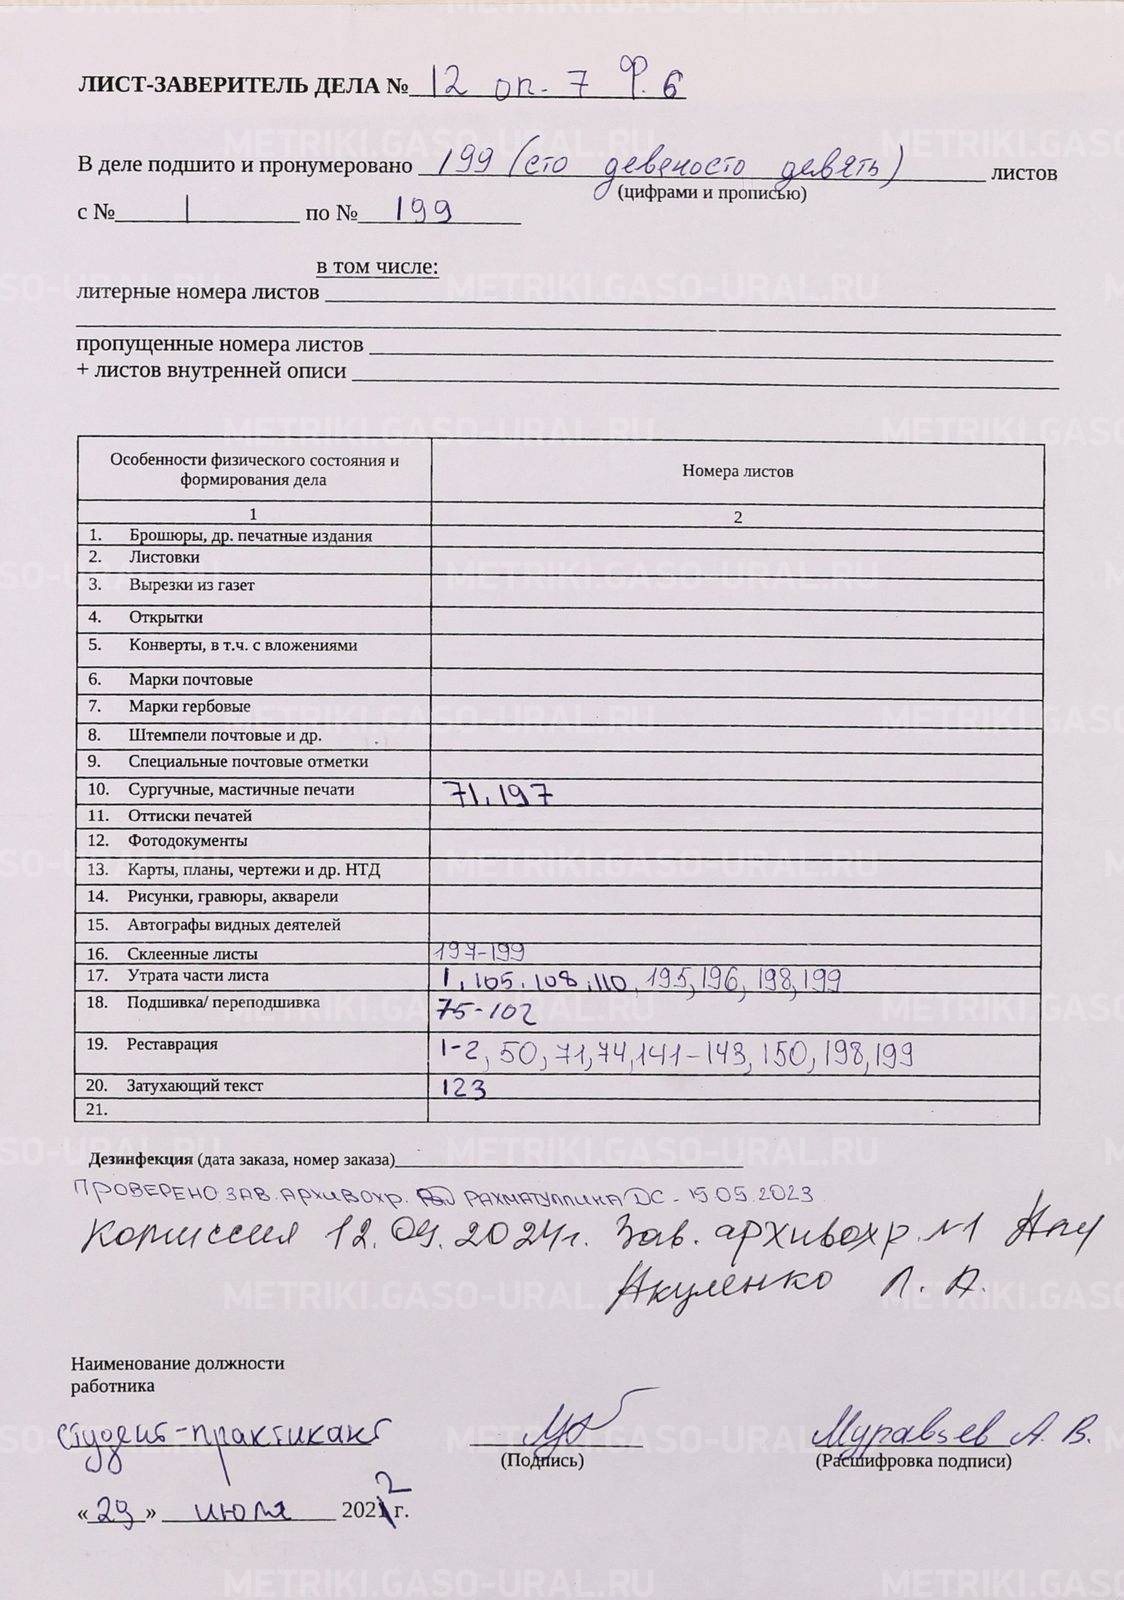 ЛИСТ-ЗАВЕРИТЕЛЬ ДЕЛА № 12 оп. 7 Ф. 6
В деле подшито и пронумеровано 199 (сто девяносто девять) листов
(цифрами и прописью)
с № 1 по № 199
в том числе:
литерные номера листов
пропущенные номера листов
+ листов внутренней описи
Особенности физического состояния и формирования дела Номера листов
1 2
1. Брошюры, др. печатные издания
2. Листовки
3. Вырезки из газет
4. Открытки
5. Конверты, в т.ч. с вложениями
6. Марки почтовые
7. Марки гербовые
8. Штемпели почтовые и др.
9. Специальные почтовые отметки
10. Сургучные, мастичные печати 71, 197
11. Оттиски печатей
12. Фотодокументы
13. Карты, планы, чертежи и др. НТД
14. Рисунки, гравюры, акварели
15. Автографы видных деятелей
16. Склеенные листы 197-199
17. Утрата части листа 1, 105, 108, 110, 195, 196, 198, 199
18. Подшивка/ переподшивка 75-102
19. Реставрация 1-2, 50, 71, 74, 141-143, 150, 198, 199
20. Затухающий текст 123
21.
Дезинфекция (дата заказа, номер заказа)
ПРОВЕРЕНО ЗАВ. АРХИВОХР. РАХМАТУЛЛИНА ДС - 15.05.2023
Комиссия 12.04.2024г. Зав. архивохр. №1
Акуленко Л. А.
Наименование должности
работника
студент-практикант Муравьев А. В.
(Подпись) (Расшифровка подписи)
«29» июля 2022 г.
METRIKI.GASO-URAL.RU